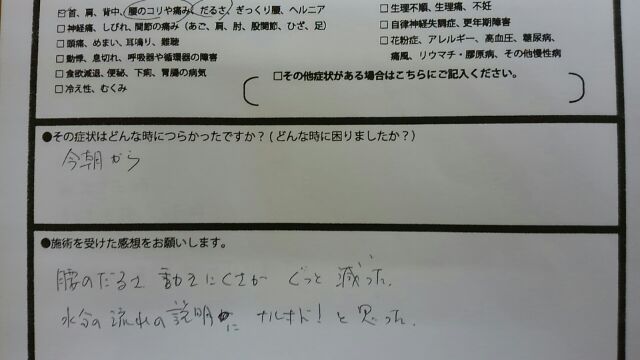 ☑首、肩、背中、腰のコリや痛み、だるさ、ぎっくり腰、ヘルニア
□神経痛、しびれ、関節の痛み(あご、肩、肘、股関節、ひざ、足)
□頭痛、めまい、耳鳴り、難聴
□動悸、息切れ、呼吸器や循環器の障害
□食欲減退、便秘、下痢、胃腸の病気
□冷え性、むくみ
□生理不順、生理痛、不妊
□自律神経失調症、更年期障害
□花粉症、アレルギー、高血圧、糖尿病、
痛風、リウマチ・膠原病、その他慢性病
□その他症状がある場合はこちらにご記入ください。
●その症状はどんな時につらかったですか?(どんな時に困りましたか?)
今朝から
●施術を受けた感想をお願いします。
腰のだるさ 動きにくさが ぐっと 減った.
水分の流れの説明に ナルホド! と思った.